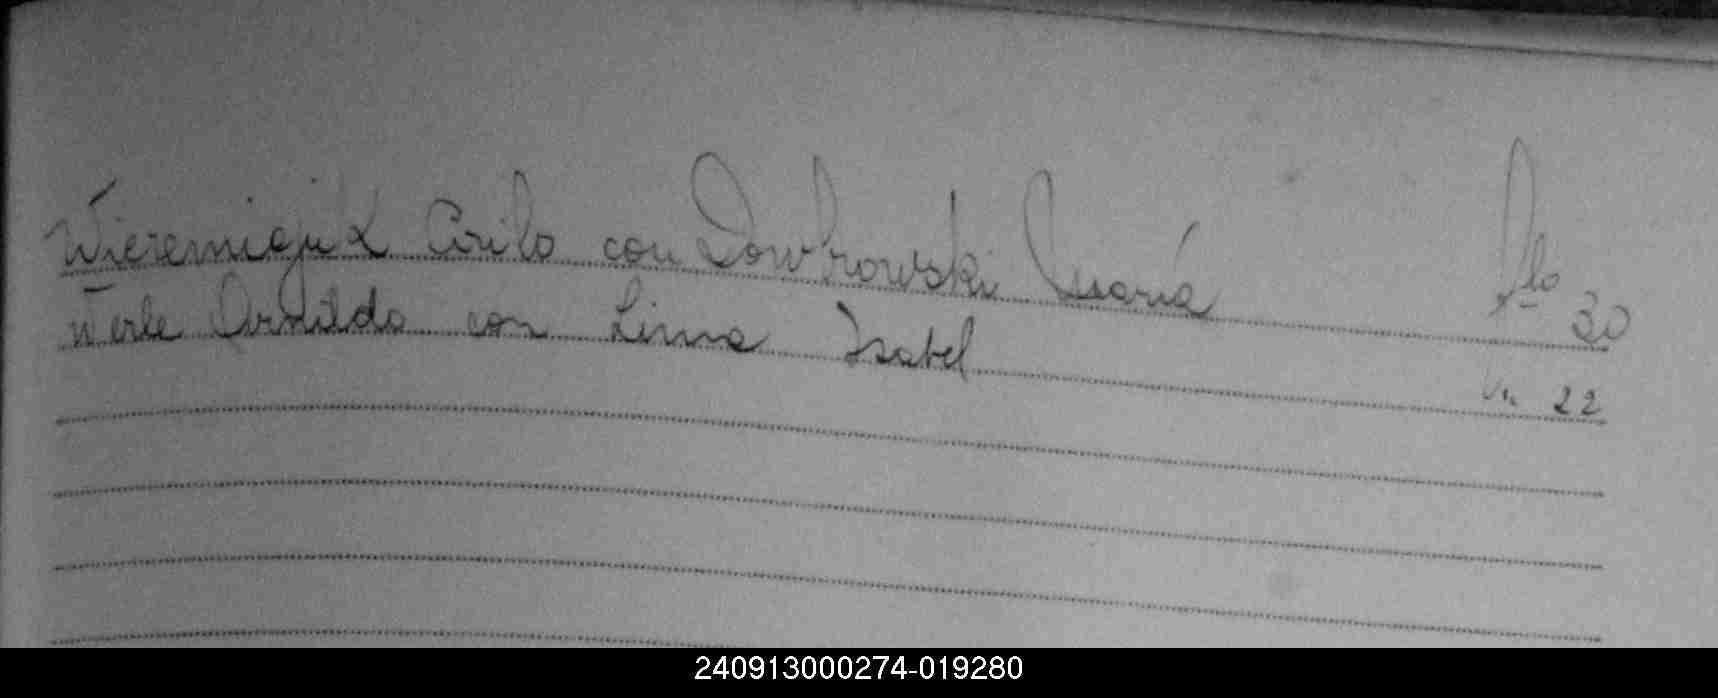 Wieremiejuk Cirilo con Dowbrowski María Flo 30
Werle Arnildo con Lima Isabel " 22
240913000274-019280